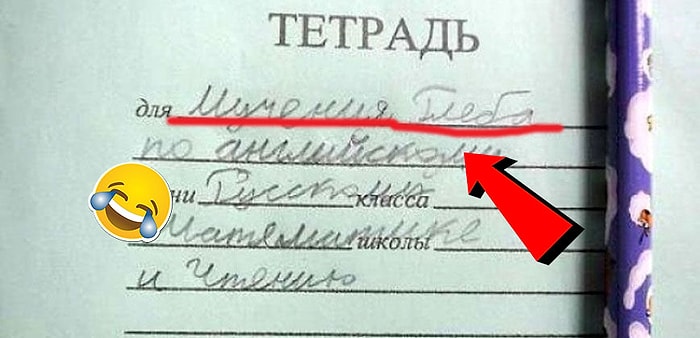 ТЕТРАДЬ
для Мучения Глеба
по английскому
ни Русскому класса
Математике школы
и Чтению